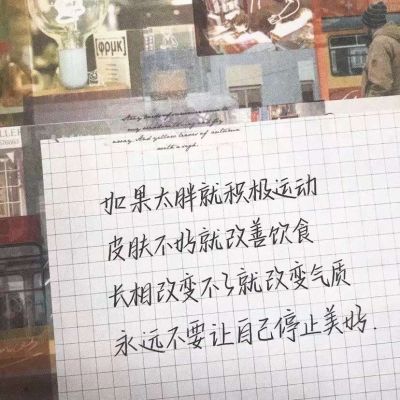 [фрцк]
如果太胖就积极运动
皮肤不好就改善饮食
长相改变不了就改变气质
永远不要让自己停止美好.